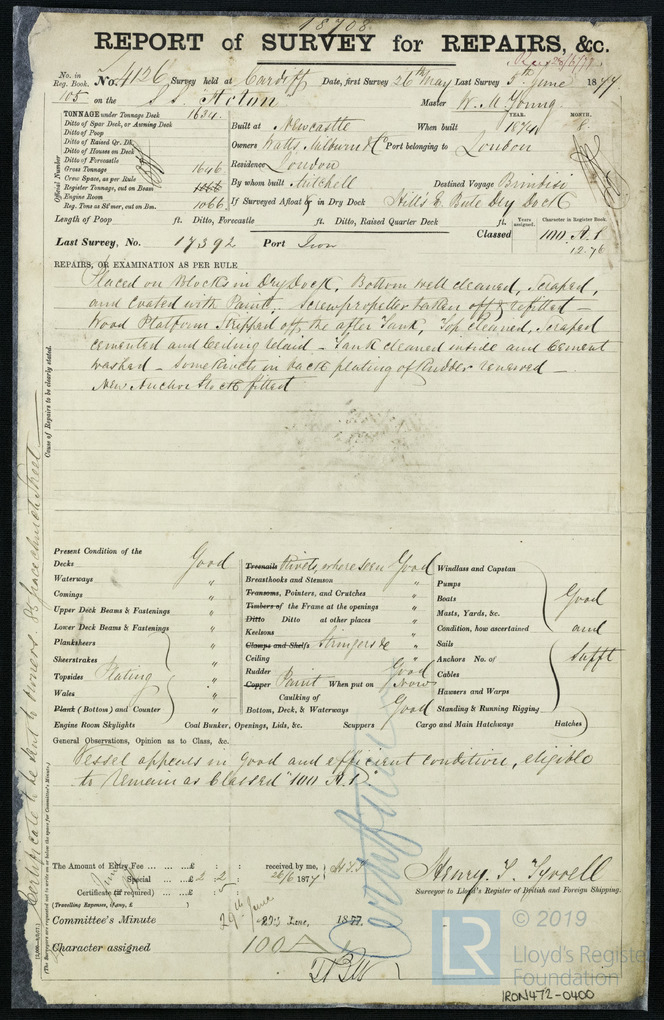 18708
REPORT of SURVEY for REPAIRS, &c.
No. in Reg. Book. No. 4126 Survey held at Cardiff Date, first Survey 26th May Last Survey 5th June 1877
105 on the S.S. "Acton" Master W. M. Young
TONNAGE under Tonnage Deck 1634
Ditto of Spar Deck, or Awning Deck
Ditto of Poop
Ditto of Raised Qr. Dk
Ditto of Houses on Deck
Ditto of Forecastle
Gross Tonnage 1646
Crew Space, as per Rule
Register Tonnage, cut on Beam
Engine Room
Reg. Tons as St'mer, cut on Bm. 1066
Official Number
YEAR. MONTH.
Built at Newcastle When built 1874 8
Owners Watts, Milburn & Co Port belonging to London
Residence London
By whom built Mitchell Destined Voyage Brindisi
If Surveyed Afloat & in Dry Dock Hill's E. Bute Dry Dock
Length of Poop ft. Ditto, Forecastle ft. Ditto, Raised Quarter Deck ft.
Years assigned. Character in Register Book.
Classed 100 A.1
12.76
Last Survey, No. 17392 Port Iron
REPAIRS, OR EXAMINATION AS PER RULE
Placed on Blocks in Dry Dock, Bottom well cleaned, Scraped,
and Coated with Paint. Screwpropeller taken off & refitted —
Wood Platform Stripped off the after Tank, Top cleaned, Scraped
cemented and Ceiling relaid — Tank cleaned inside and Cement
washed — Some Rivets in back plating of Rudder renewed —
New Anchor Stock fitted
Cause of Repairs to be clearly stated.
Certificate to be sent to Owners. Gracechurch Street
Present Condition of the
Decks Good
Waterways "
Comings "
Upper Deck Beams & Fastenings "
Lower Deck Beams & Fastenings "
Planksheers "
Sheerstrakes "
Topsides Plating "
Wales "
Plank (Bottom) and Counter "
Engine Room Skylights Coal Bunker, Openings, Lids, &c. Scuppers Cargo and Main Hatchways Hatches
Treenails Rivets, where seen Good
Breasthooks and Stemson "
Transoms, Pointers, and Crutches "
Timbers of the Frame at the openings "
Ditto Ditto at other places "
Keelsons "
Clamps and Shelfs Stringers &c "
Ceiling "
Rudder Good
Copper Paint When put on Now
Caulking of
Bottom, Deck, & Waterways Good
Windlass and Capstan
Pumps
Boats
Masts, Yards, &c.
Condition, how ascertained
Sails
Anchors No. of
Cables
Hawsers and Warps
Standing & Running Rigging
Good
and
Sufft
General Observations, Opinion as to Class, &c.
Vessel appears in Good and efficient condition, eligible
to remain as Classed "100 A.1"
The Amount of Entry Fee ... ... £ : : received by me,
Special ... ... £ 2 2 : 26/6 1877
Certificate (if required) ... £ : 5
(Travelling Expenses, if any, £ )
Henry T. Tyrrell
Surveyor to Lloyd's Register of British and Foreign Shipping.
Certificate
29th June
Committee's Minute 1877
Character assigned 100 A
© 2019
LR
Lloyd's Register
Foundation
IRON472-0400